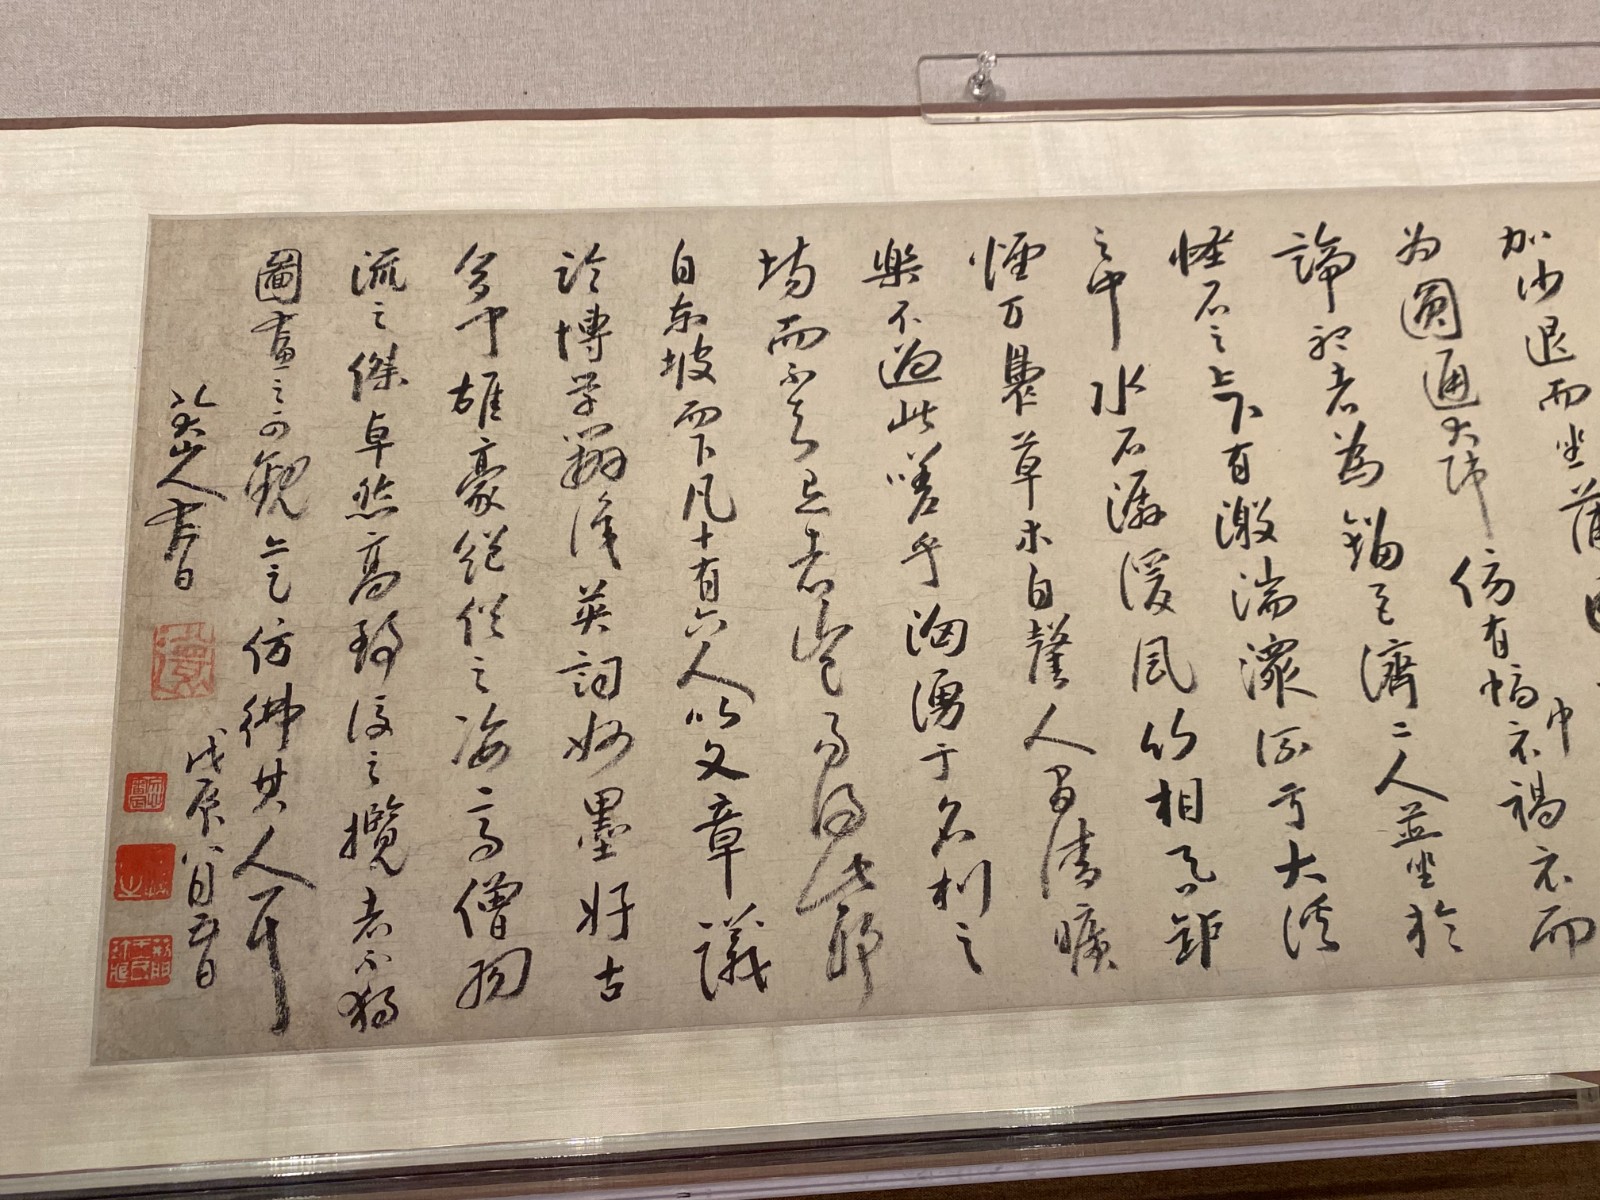 加沙退而坐蒲
中
為圓通大師傍有幅
衣褐衣而
論
者為
濟二人並坐於
怪石之上下有激湍潨流于大溪
之中水石潺湲風竹相吞鉅
煙方
草木自馨人間清曠
樂不過此嗟乎洶湧于名利之
場而不知退者豈易得此耶
自東坡而下凡十有六人以文章議
論博學辨識英詞妙墨好古
多聞雄豪絕俗之姿高僧羽
流之傑卓然高致後之攬者不獨
圖畫之可觀亦足仿彿其人耳
八大山人書
戊辰八月
日